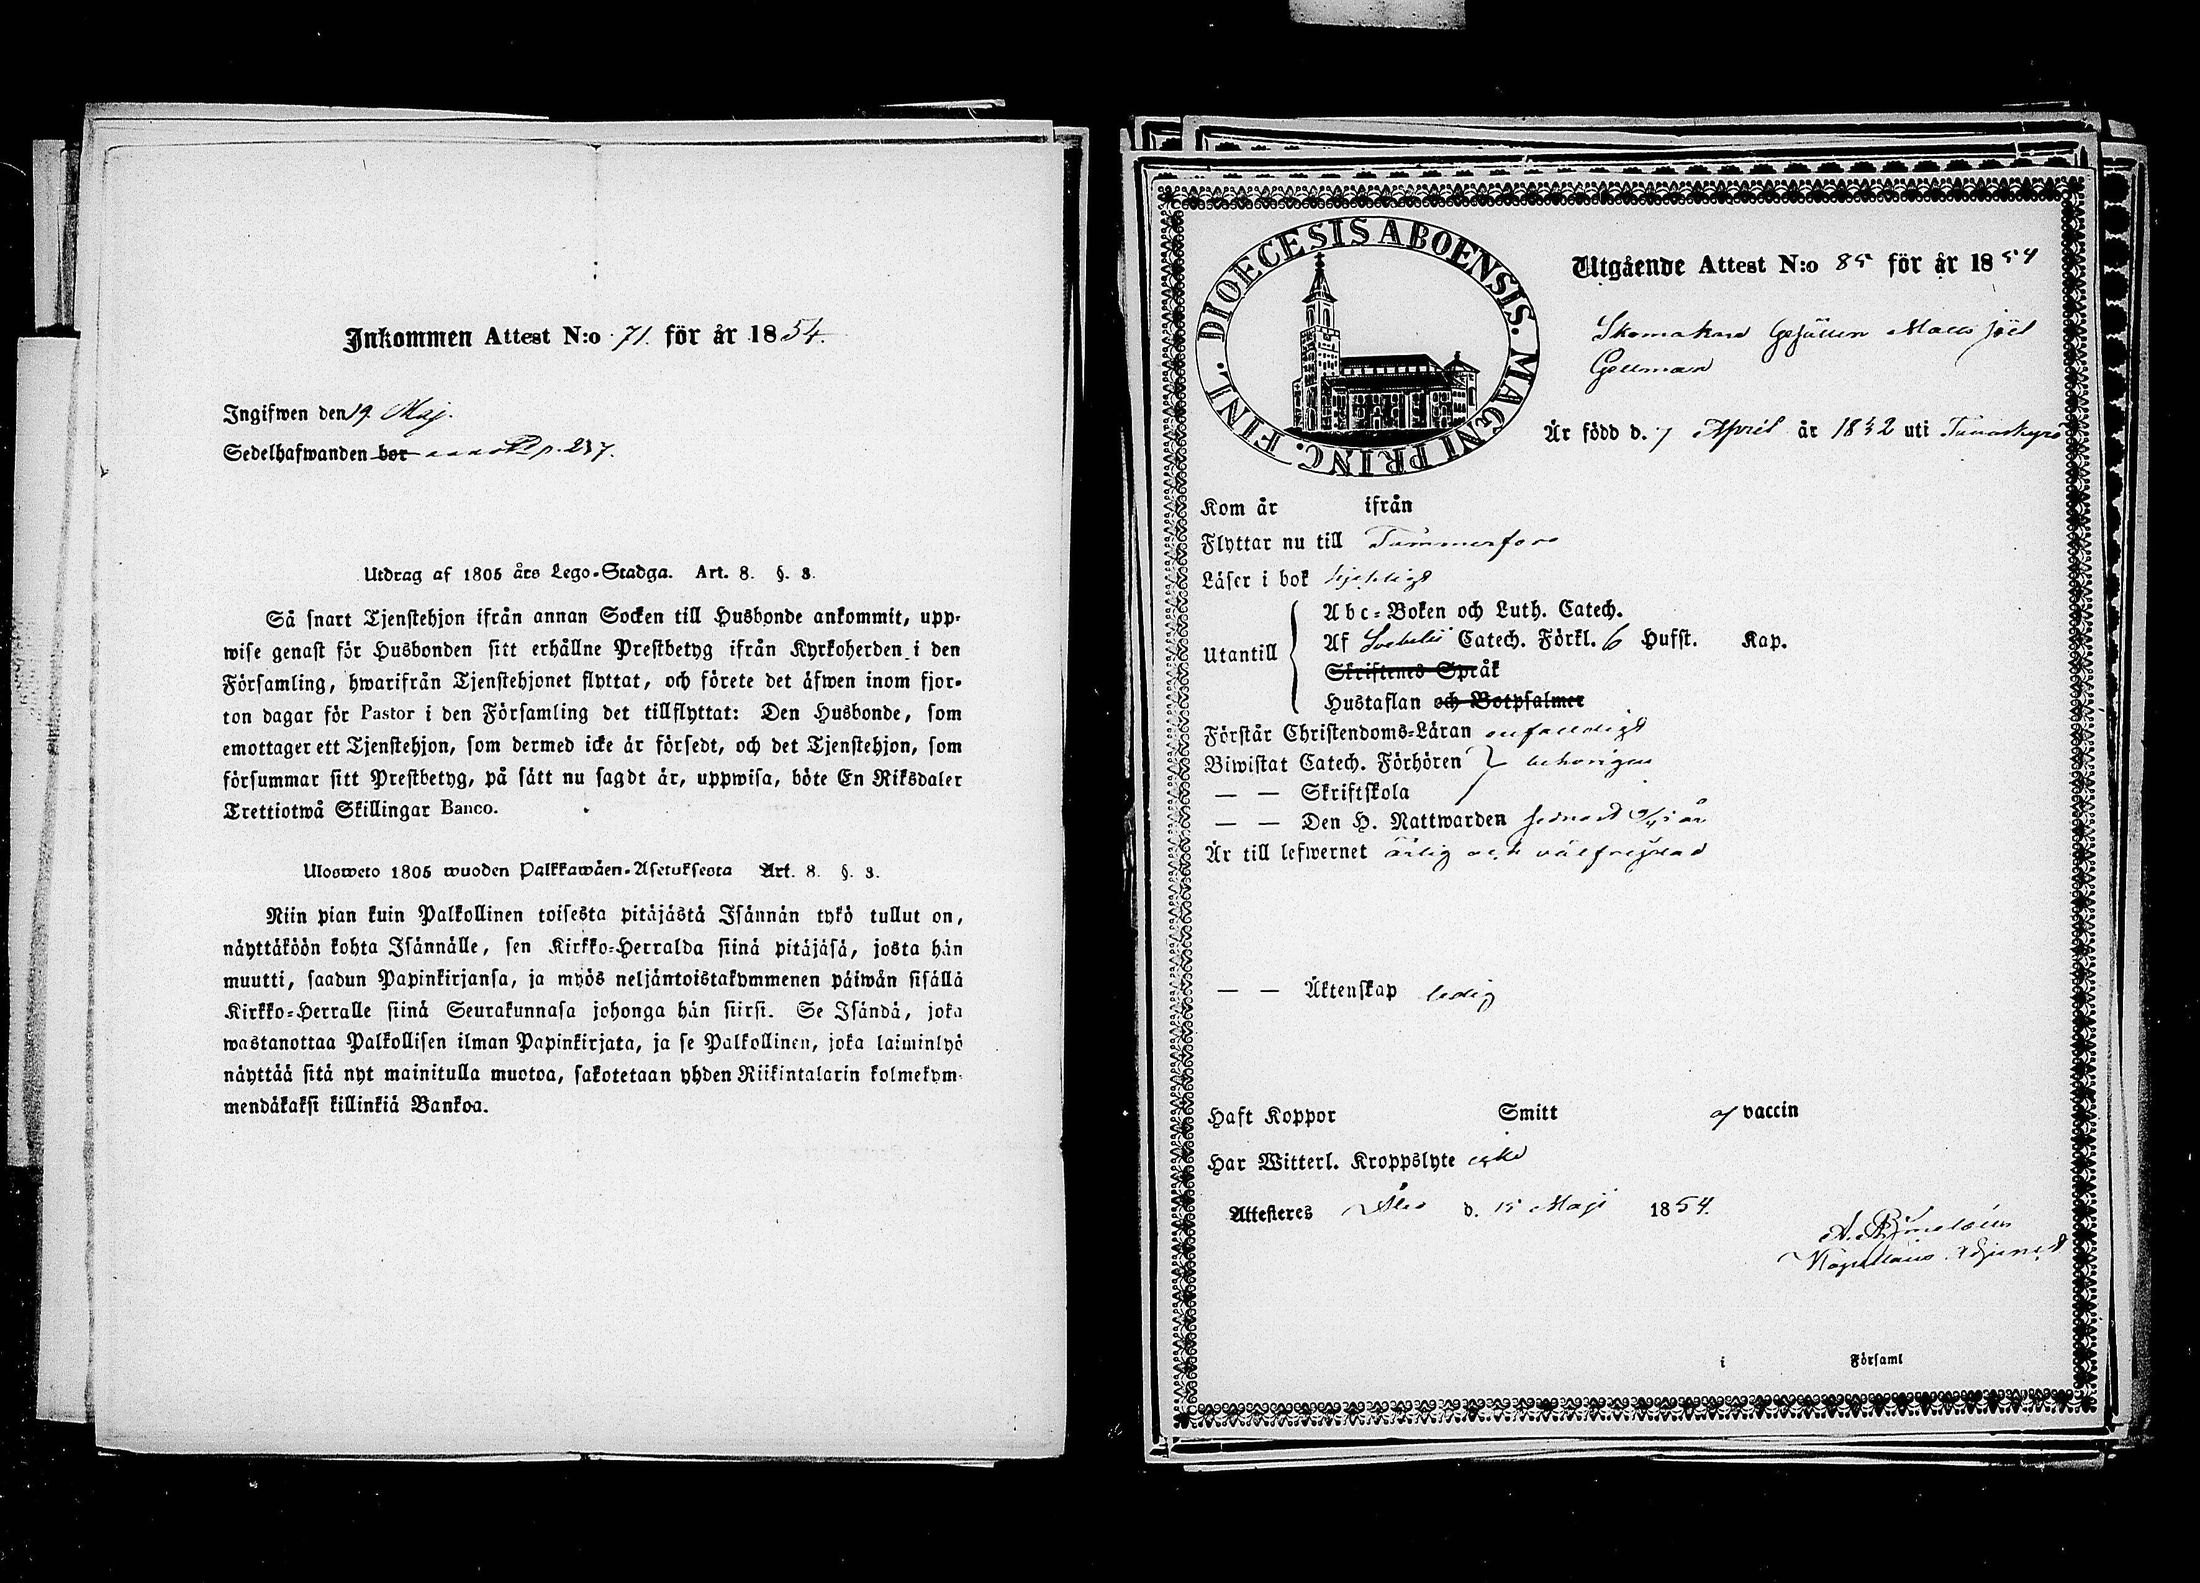 Inkommen Attest N:o 71. för år 1854.
Ingifwen den 19 Maj.
Sedelhafwanden bor p. 237.
Utdrag af 1805 års Lego-Stadga. Art. 8. §. 3.
Så snart Tjenstehjon ifrån annan Socken till Husbonde ankommit, upp-
wise genast för Husbonden sitt erhållne Prestbetyg ifrån Kyrkoherden i den
Församling, hwarifrån Tjenstehjonet flyttat, och förete det äfwen inom fjor-
ton dagar för Pastor i den Församling det tillflyttat: Den Husbonde, som
emottager ett Tjenstehjon, som dermed icke är försedt, och det Tjenstehjon, som
försummar sitt Prestbetyg, på sätt nu sagdt är, uppwisa, böte En Riksdaler
Trettiotwå Skillingar Banco.
Ulosweto 1805 wuoden Palkkawäen-Asetuksesta Art. 8. §. 3.
Niin pian kuin Palkollinen toisesta pitäjästä Isännän tykö tullut on,
näyttäköön kohta Isännälle, sen Kirkko-Herralda siinä pitäjäsä, josta hän
muutti, saadun Papinkirjansa, ja myös neljäntoistakymmenen päiwän sisällä
Kirkko-Herralle siinä Seurakunnasa johonga hän siirsi. Se Isändä, joka
wastanottaa Palkollisen ilman Papinkirjata, ja se Palkollinen, joka laiminlyö
näyttää sitä nyt mainitulla muotoa, sakotetaan yhden Riikintalarin kolmekym-
mendäkaksi killinkiä Bankoa.
DIOECESIS ABOENSIS. MAGNI PRINC. FINL.
Utgående Attest N:o 85 för år 1854
Skomakare Gesällen Mats Joel
Gellman
Är född d. 7 April år 1832 uti Tavastkyro
Kom år ifrån
Flyttar nu till Tammerfors
Läser i bok hjelpligt
Utantill
Abc-Boken och Luth. Catech.
Af Svebelii Catech. Förkl. 6 Hufst. Kap.
Skriftenes Språk
Hustaflan och Botpsalmer
Förstår Christendoms-Läran enfaldigt
Biwistat Catech. Förhören behörigen
— — Skriftskola
— — Den H. Nattwarden sednast i år
Är till lefwernet ärlig och välfrejdad
— — Äktenskap ledig
Haft Koppor Smitt af vaccin
Har Witterl. Kroppslyte icke
Attesteres Åbo d. 15 Maji 1854.
Kapellans Adjunct
i Församl